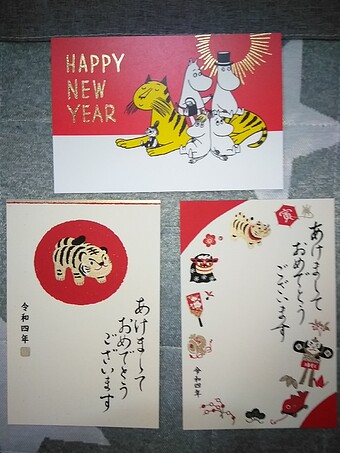 HAPPY
NEW
YEAR
あけまして
おめでとう
ございます
令和四年
寅
あけまして
おめでとう
ございます
令和四年